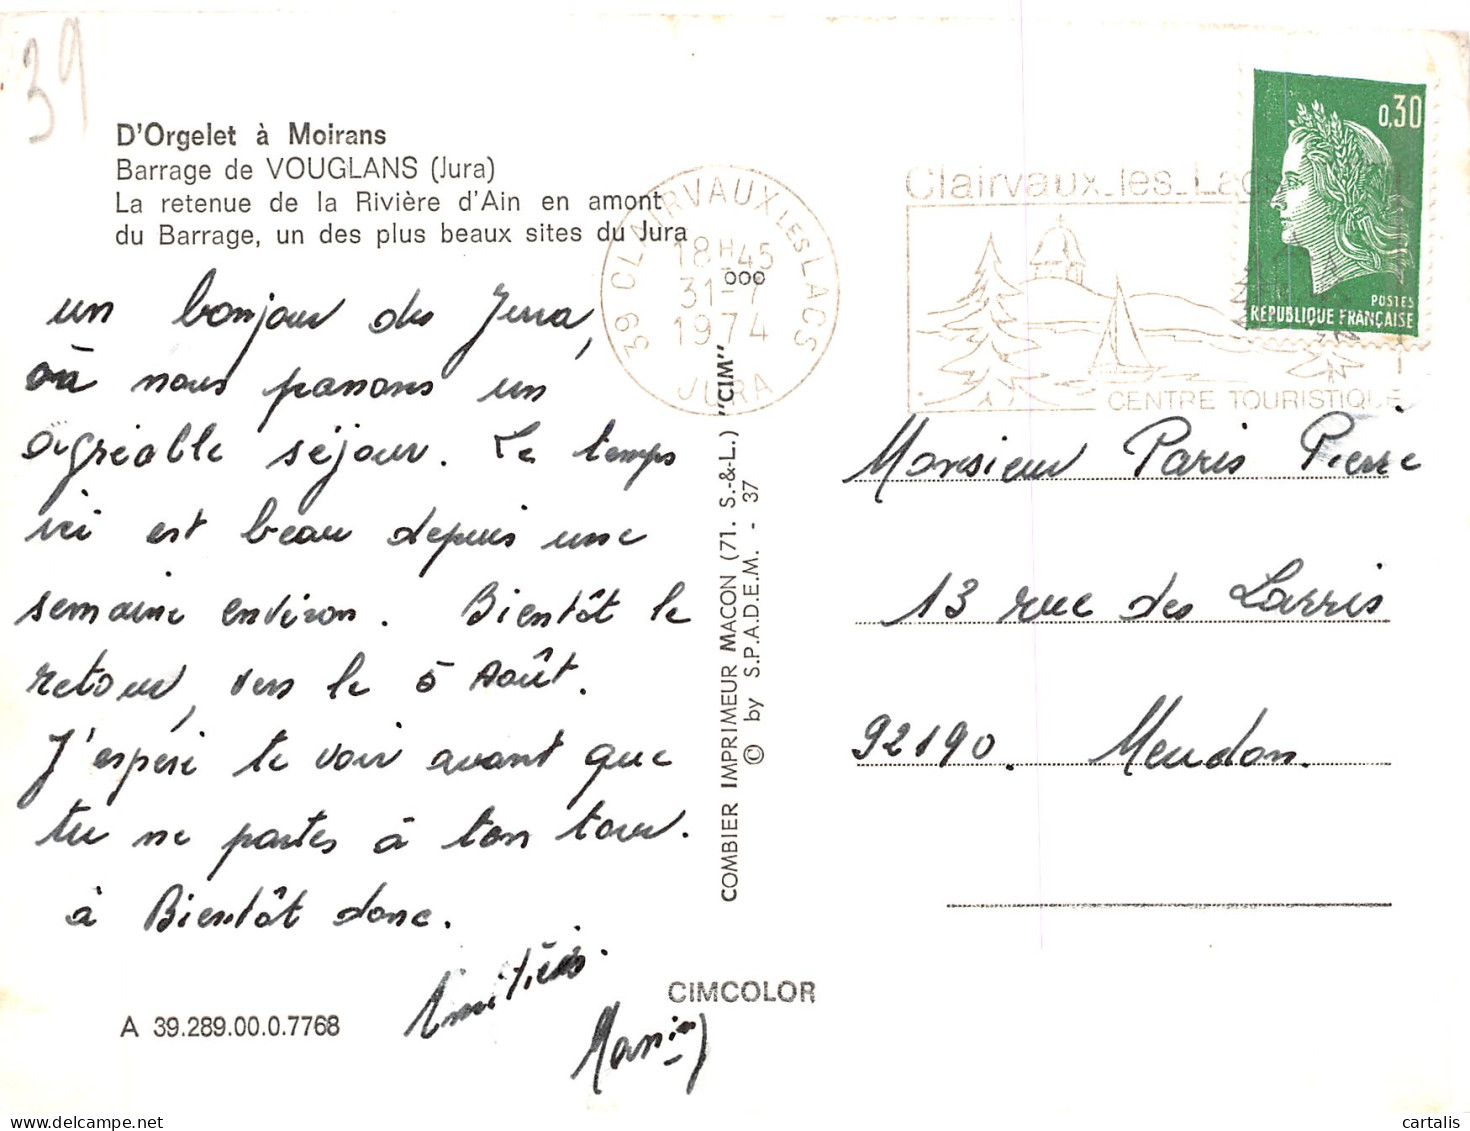 39
D'Orgelet à Moirans
Barrage de VOUGLANS (Jura)
La retenue de la Rivière d'Ain en amont
du Barrage, un des plus beaux sites du Jura
un bonjour du Jura,
où nous passons un
agréable séjour. Le temps
ici est beau depuis une
semaine environ. Bientôt le
retour, vers le 5 Août.
J'espère te voir avant que
tu ne partes à ton tour.
à Bientôt donc.
Amitiés.
A 39.289.00.0.7768
CIMCOLOR
COMBIER IMPRIMEUR MACON (71. S.-&-L.) "CIM"
© by S.P.A.D.E.M. - 37
39 CLAIRVAUX LES LACS
18H45
31-7
1974
JURA
Clairvaux-les-Lacs
CENTRE TOURISTIQUE
0,30
POSTES
REPUBLIQUE FRANÇAISE
Monsieur Paris Pierre
13 rue des Larris
92190. Meudon.
cartalis
delcampe.net